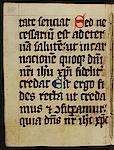 tate senciat Sed ne
cessariū est ad eter
nā salutē: ut incar
nacionē quoqꝫ dn̄i
nr̄i ihu xp̄i fidelit̄
credat Est ergo fi
des recta ut creda
mus & ꝯfiteamur.
quia dn̄s nr̄ ihc xp̄c